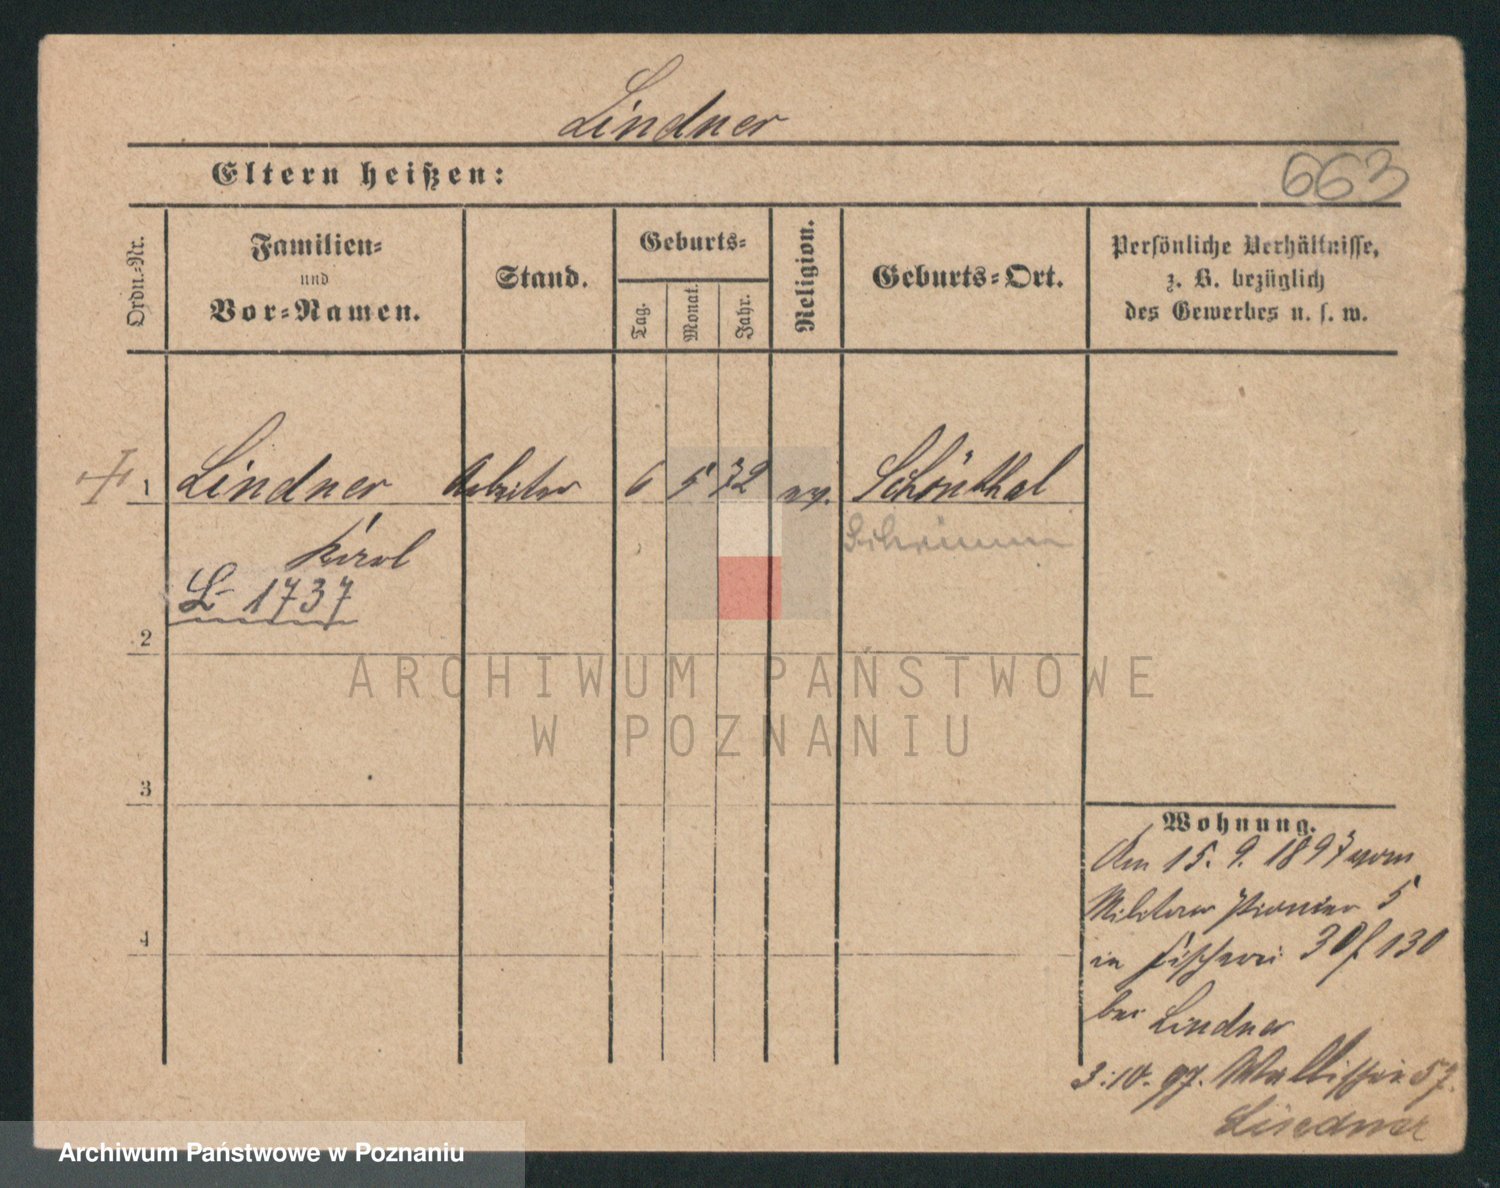 Lindner
Eltern heißen:
663
Ordn.-Nr.
Familien-
und
Vor-Namen.
Stand.
Geburts-
Tag.
Monat.
Jahr.
Religion.
Geburts-Ort.
Persönliche Verhältnisse,
z. B. bezüglich
des Gewerbes u. s. w.
1 Lindner Arbeiter 6 5 72 ev. Schönthal
Karl
L 1737
2
ARCHIWUM PAŃSTWOWE
W POZNANIU
3
4
Wohnung.
Am 15. 9. 1897 vom
Militär Pionier 5
in Fischerei 30 130
bei Lindner
3.10.97. Wallischei 57.
Lindner
Archiwum Państwowe w Poznaniu